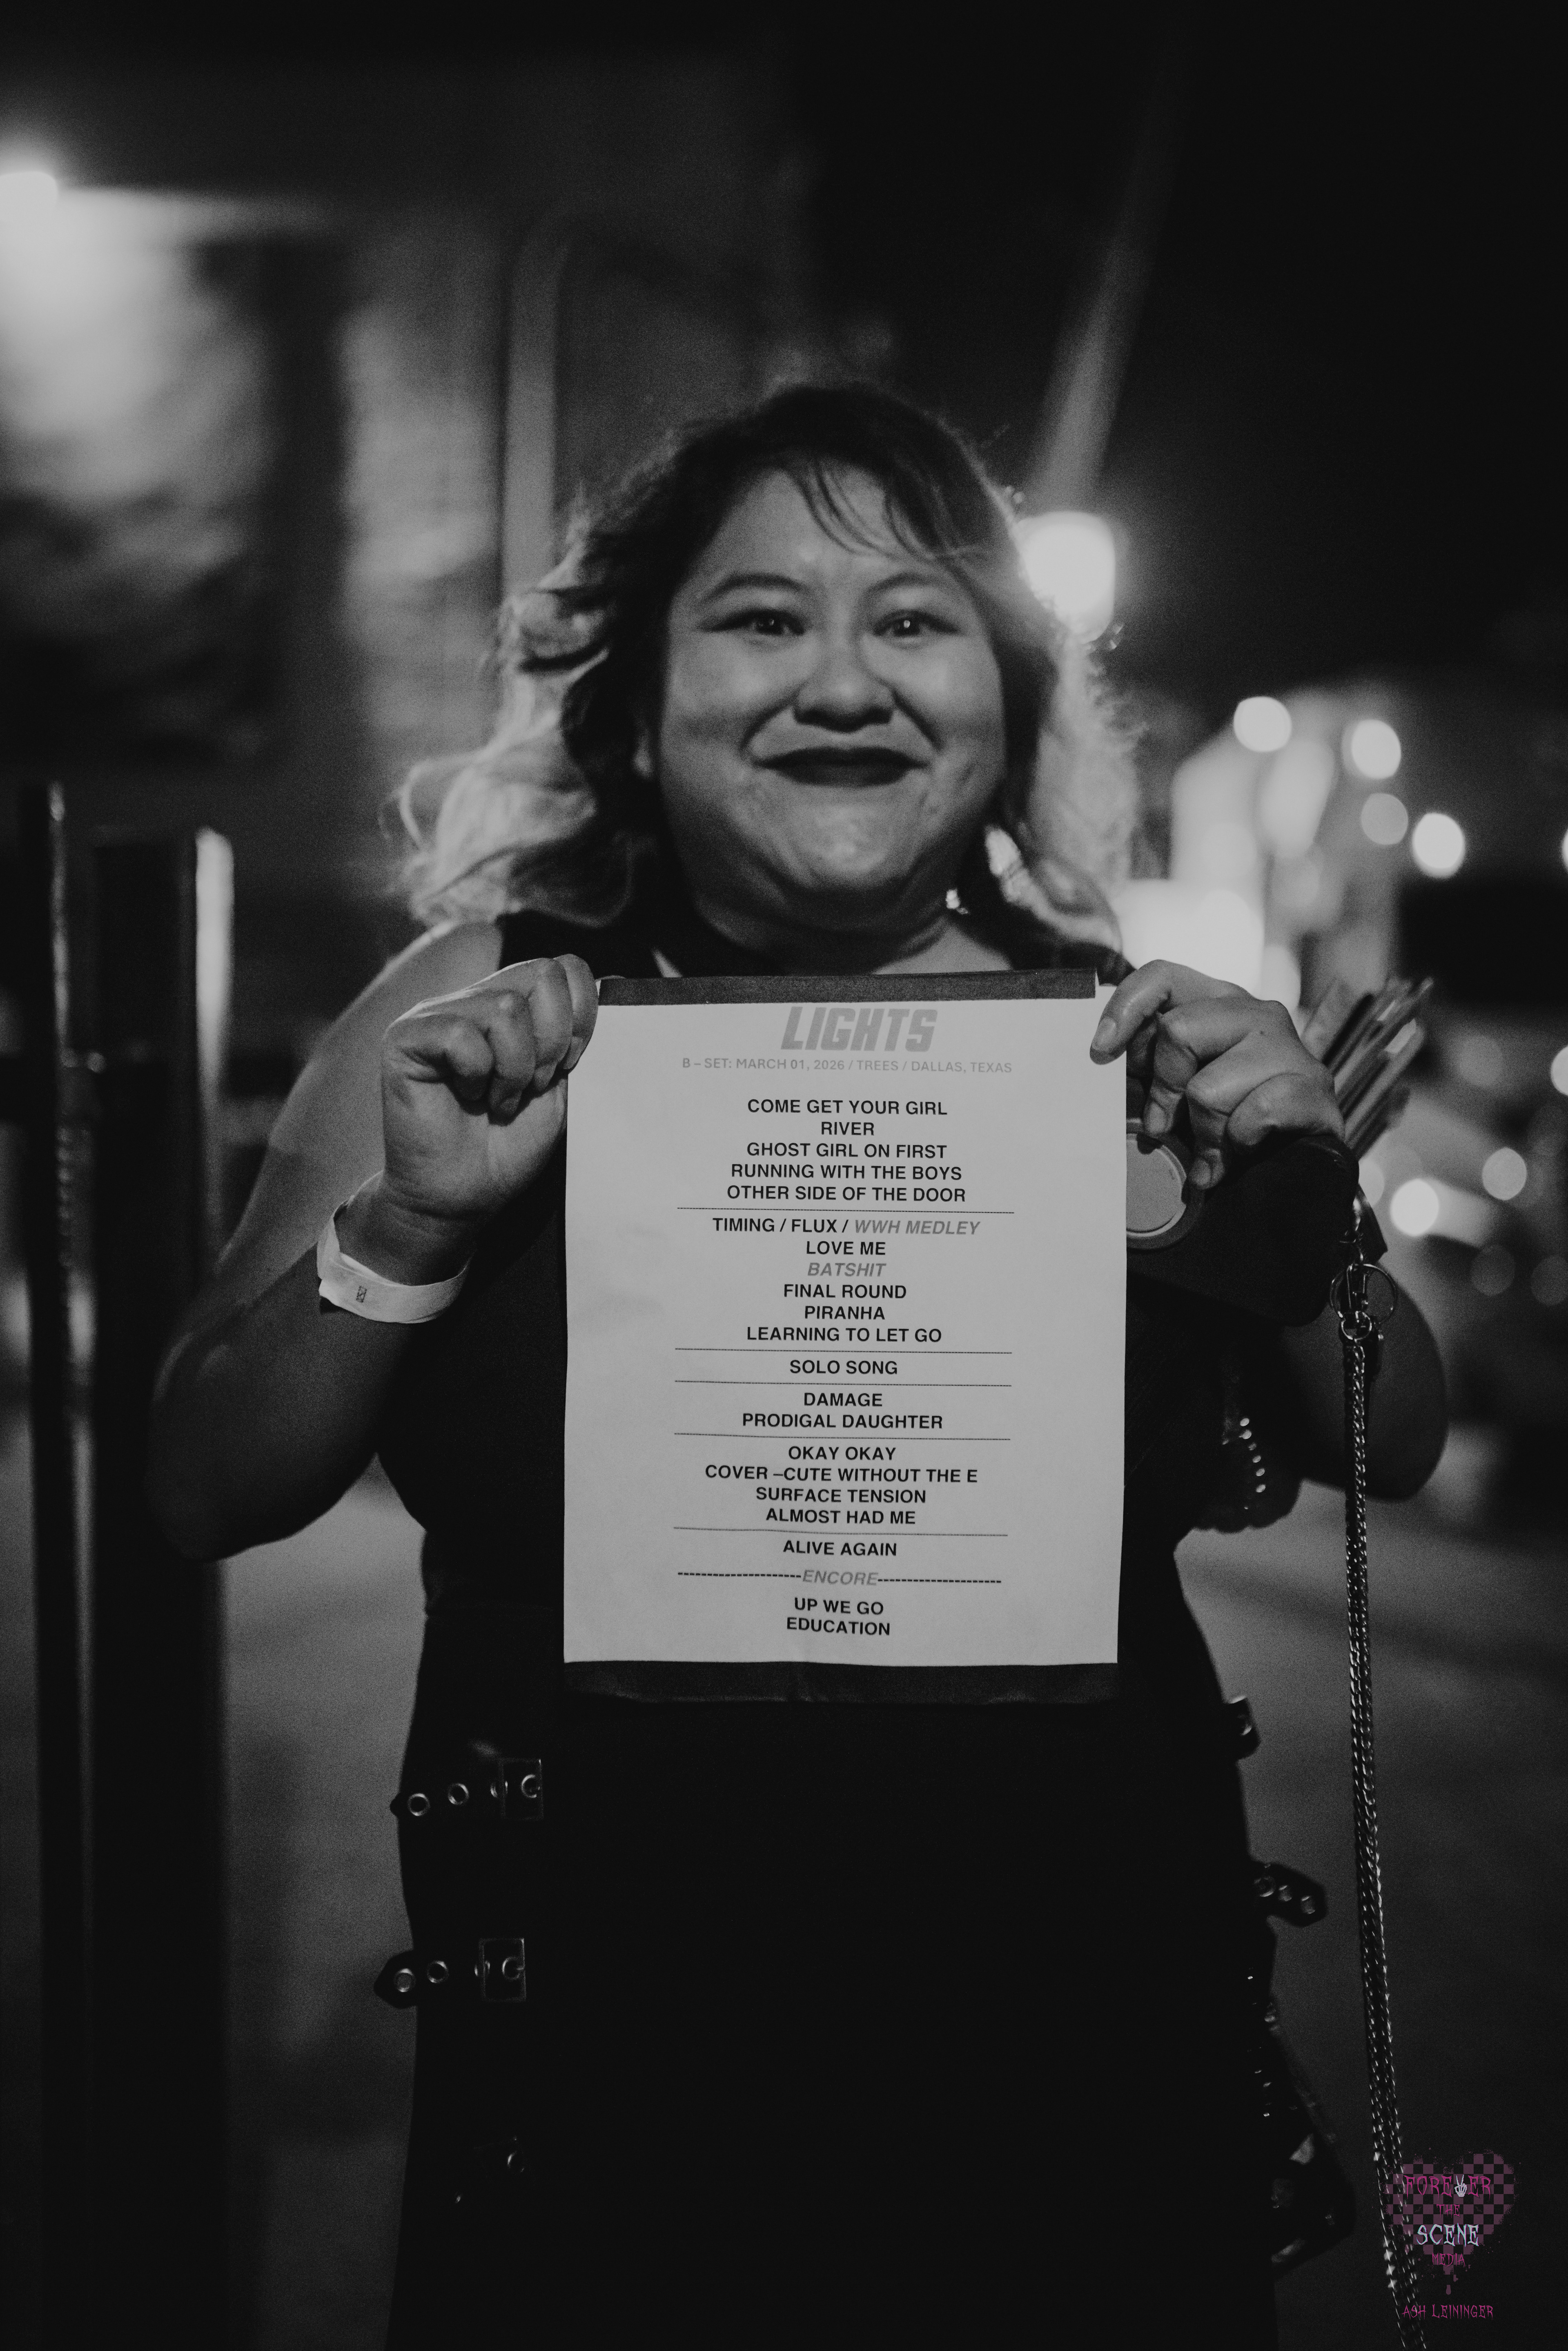 LIGHTS
B – SET: MARCH 01, 2026 / TREES / DALLAS, TEXAS
COME GET YOUR GIRL
RIVER
GHOST GIRL ON FIRST
RUNNING WITH THE BOYS
OTHER SIDE OF THE DOOR
TIMING / FLUX / WWH MEDLEY
LOVE ME
BATSHIT
FINAL ROUND
PIRANHA
LEARNING TO LET GO
SOLO SONG
DAMAGE
PRODIGAL DAUGHTER
OKAY OKAY
COVER –CUTE WITHOUT THE E
SURFACE TENSION
ALMOST HAD ME
ALIVE AGAIN
---------------------ENCORE---------------------
UP WE GO
EDUCATION
FOREVER
THE
SCENE
MEDIA
ASH LEININGER